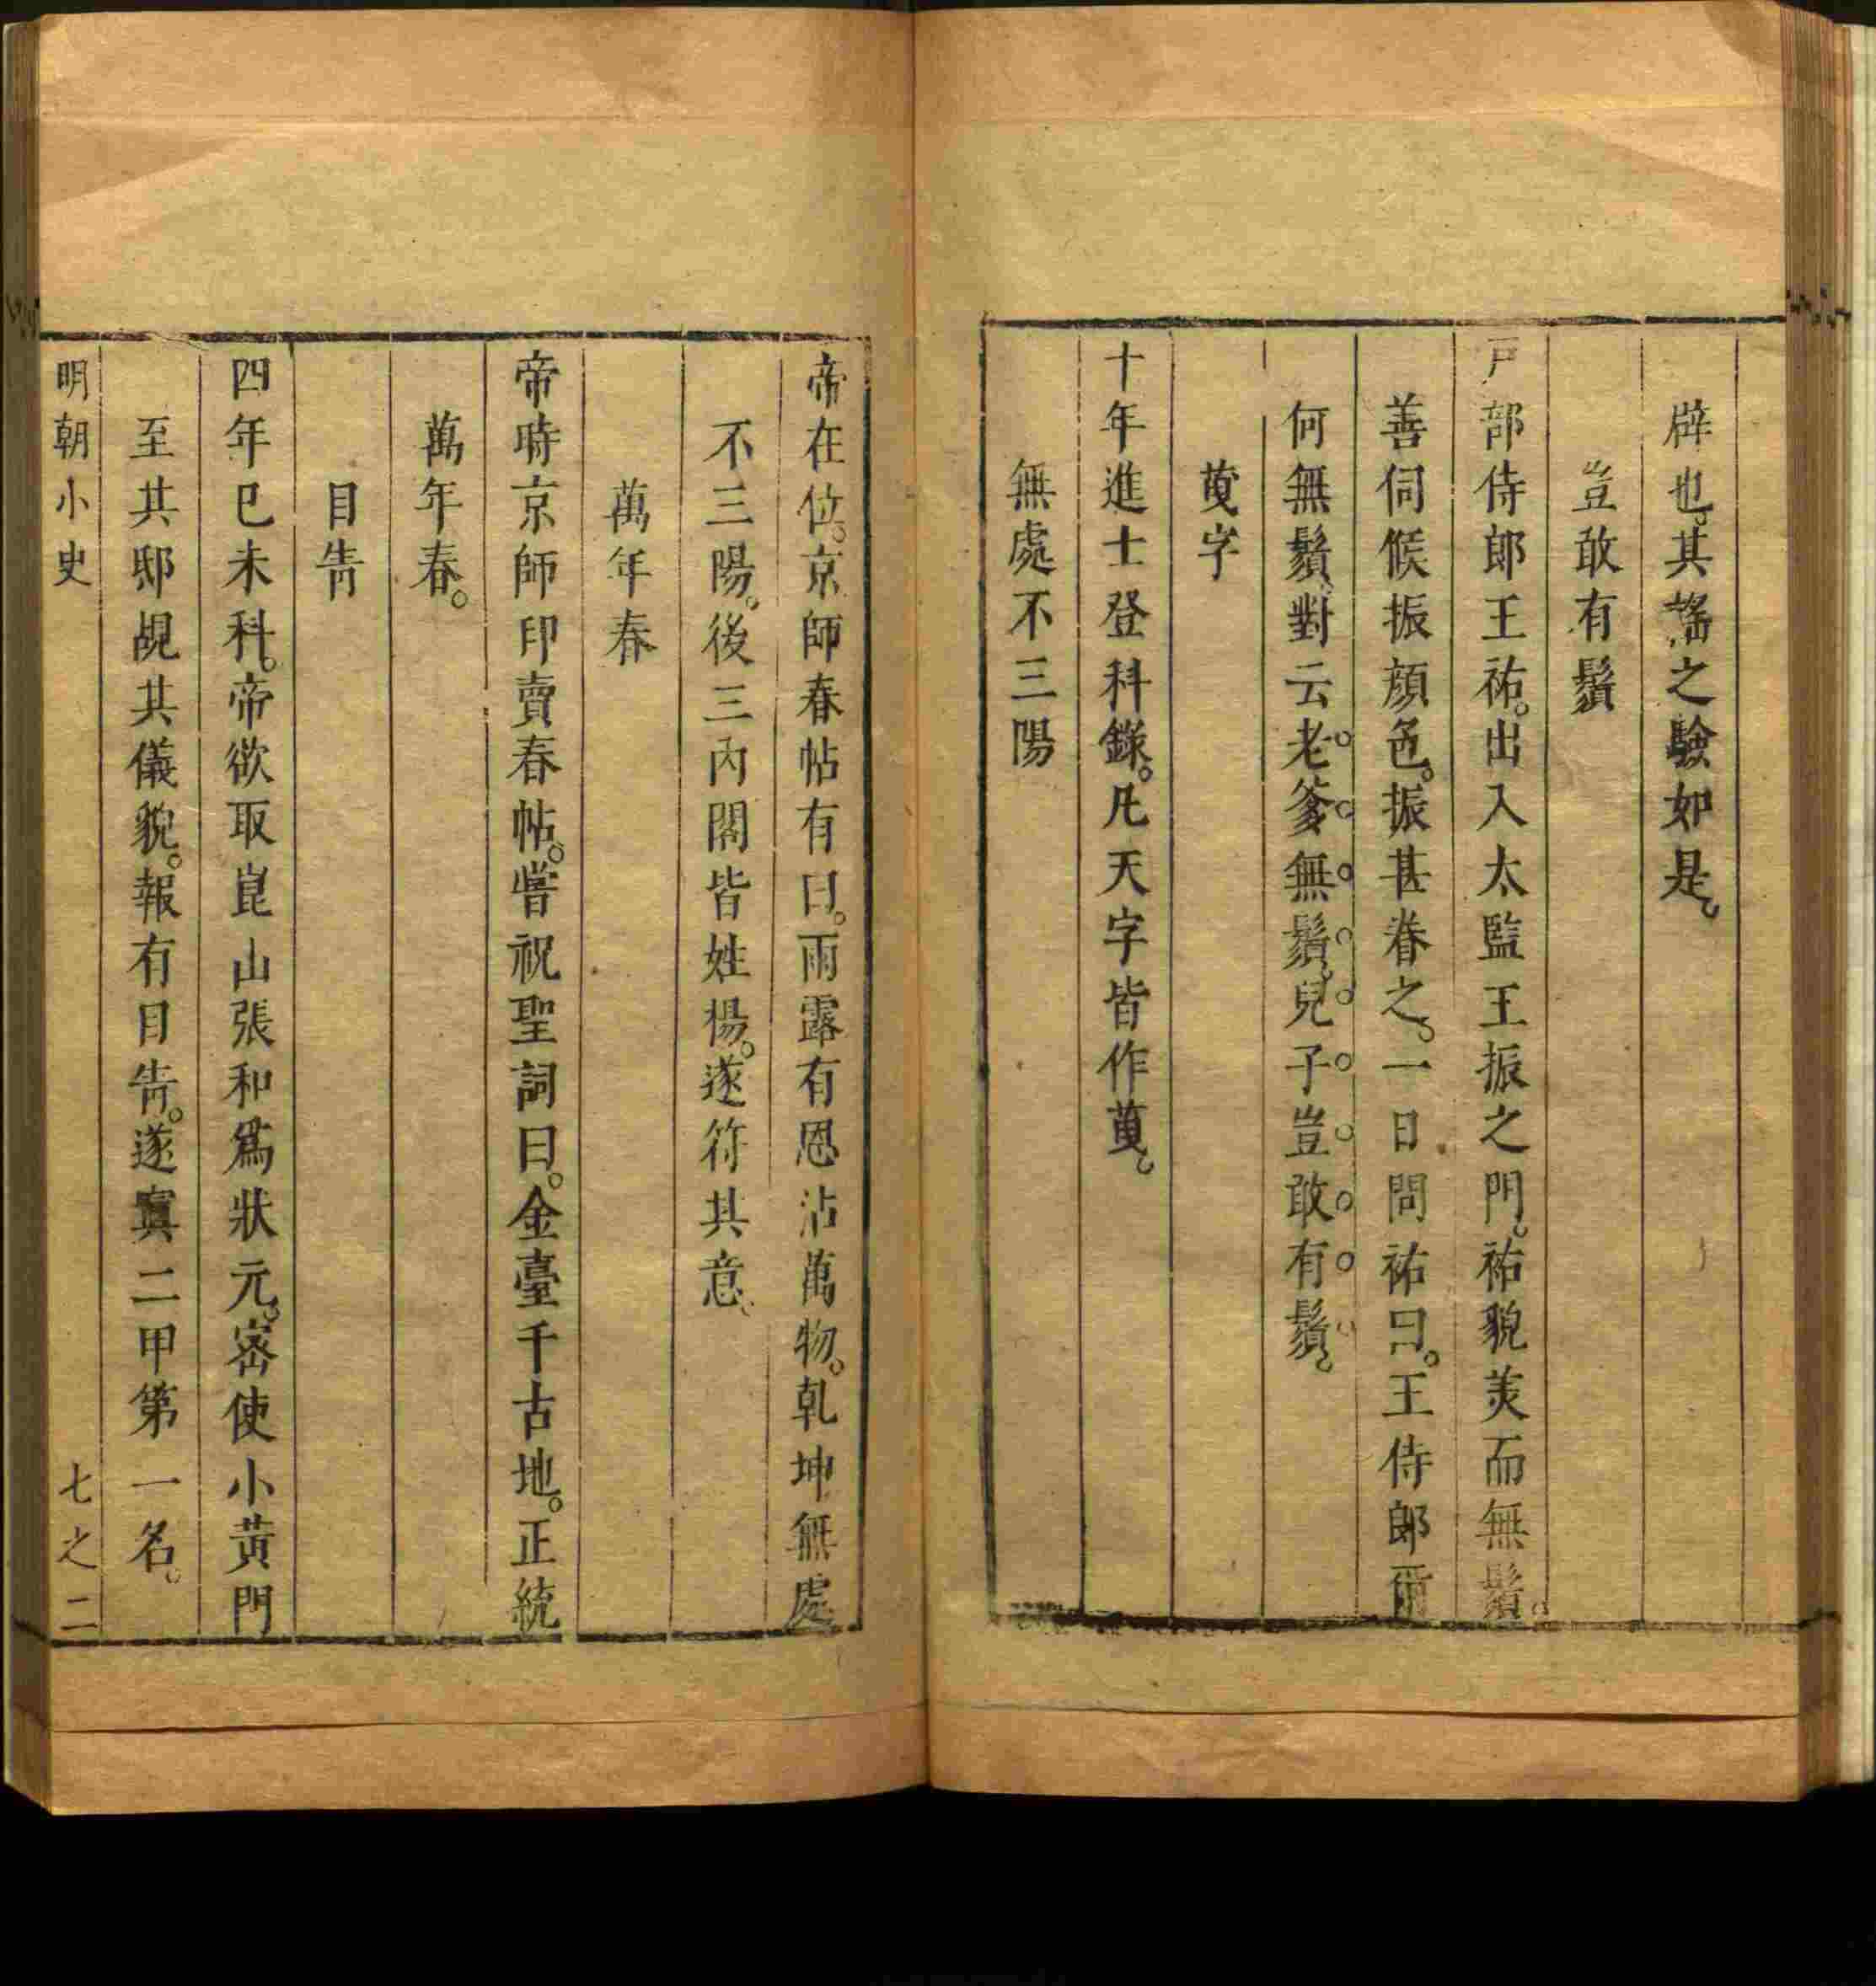 辟也。其謠之驗如是。
豈敢有鬚
戸部侍郎王祐。出入太監王振之門。祐貌美而無鬚。
善伺候振顔色。振甚眷之。一日問祐曰。王侍郎爾
何無鬚。對云老爹無鬚。兒子豈敢有鬚。
䓍字
十年進士登科錄。凡天字皆作䓍。
無處不三陽
帝在位。京師春帖有曰。雨露有恩沾萬物。乹坤無處
不三陽。後三內閣皆姓楊。遂符其意。
萬年春
帝時京師印賣春帖。嘗祝聖詞曰。金臺千古地。正統
萬年春。
目眚
四年巳未科。帝欲取崑山張和爲狀元。宻使小黃門
至其邸覘其儀貌。報有目眚。遂寘二甲第一名。
明朝小史 七之二